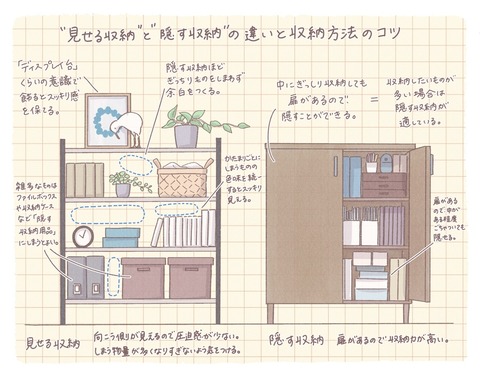 "見せる収納"と"隠す収納"の違いと収納方法のコツ
「ディスプレイ台」
くらいの意識で
飾るとスッキリ感
を保てる。
隠す収納ほど
ぎっちりものをしまわず
余白をつくる。
中にぎっしり収納しても
扉があるので
隠すことができる。
=
収納したいものが
多い場合は
隠す収納が
適している。
かたまりごとに
しまうものの
色味を統一
するとスッキリ
見える。
雑多なものは
ファイルボックス
や収納ケース
など「隠す
収納用品」
にしまうとよい。
扉がある
ので中が
ある程度
ごちゃついても
隠せる。
見せる収納
向こう側が見えるので圧迫感が少ない。
しまう物量が多くなりすぎないよう気をつける。
隠す収納
扉があるので収納力が高い。